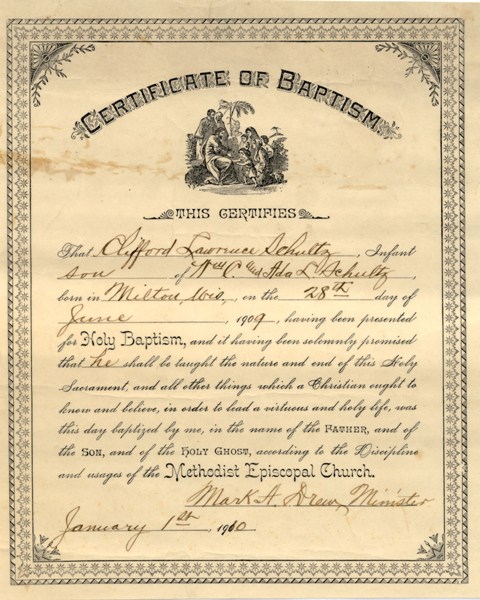 CERTIFICATE OF BAPTISM.
THIS CERTIFIES
That Clifford Lawrence Schultz, Infant
son of Wm C and Ida L Schultz
born in Milton, Wis, on the 28th day of
June 1909, having been presented
for Holy Baptism, and it having been solemnly promised
that he shall be taught the nature and end of this Holy
Sacrament, and all other things which a Christian ought to
know and believe, in order to lead a virtuous and holy life, was
this day baptized by me, in the name of the FATHER, and of
the SON, and of the HOLY GHOST, according to the Discipline
and usages of the Methodist Episcopal Church.
Mark A. Drew, Minister
January 1st, 1910